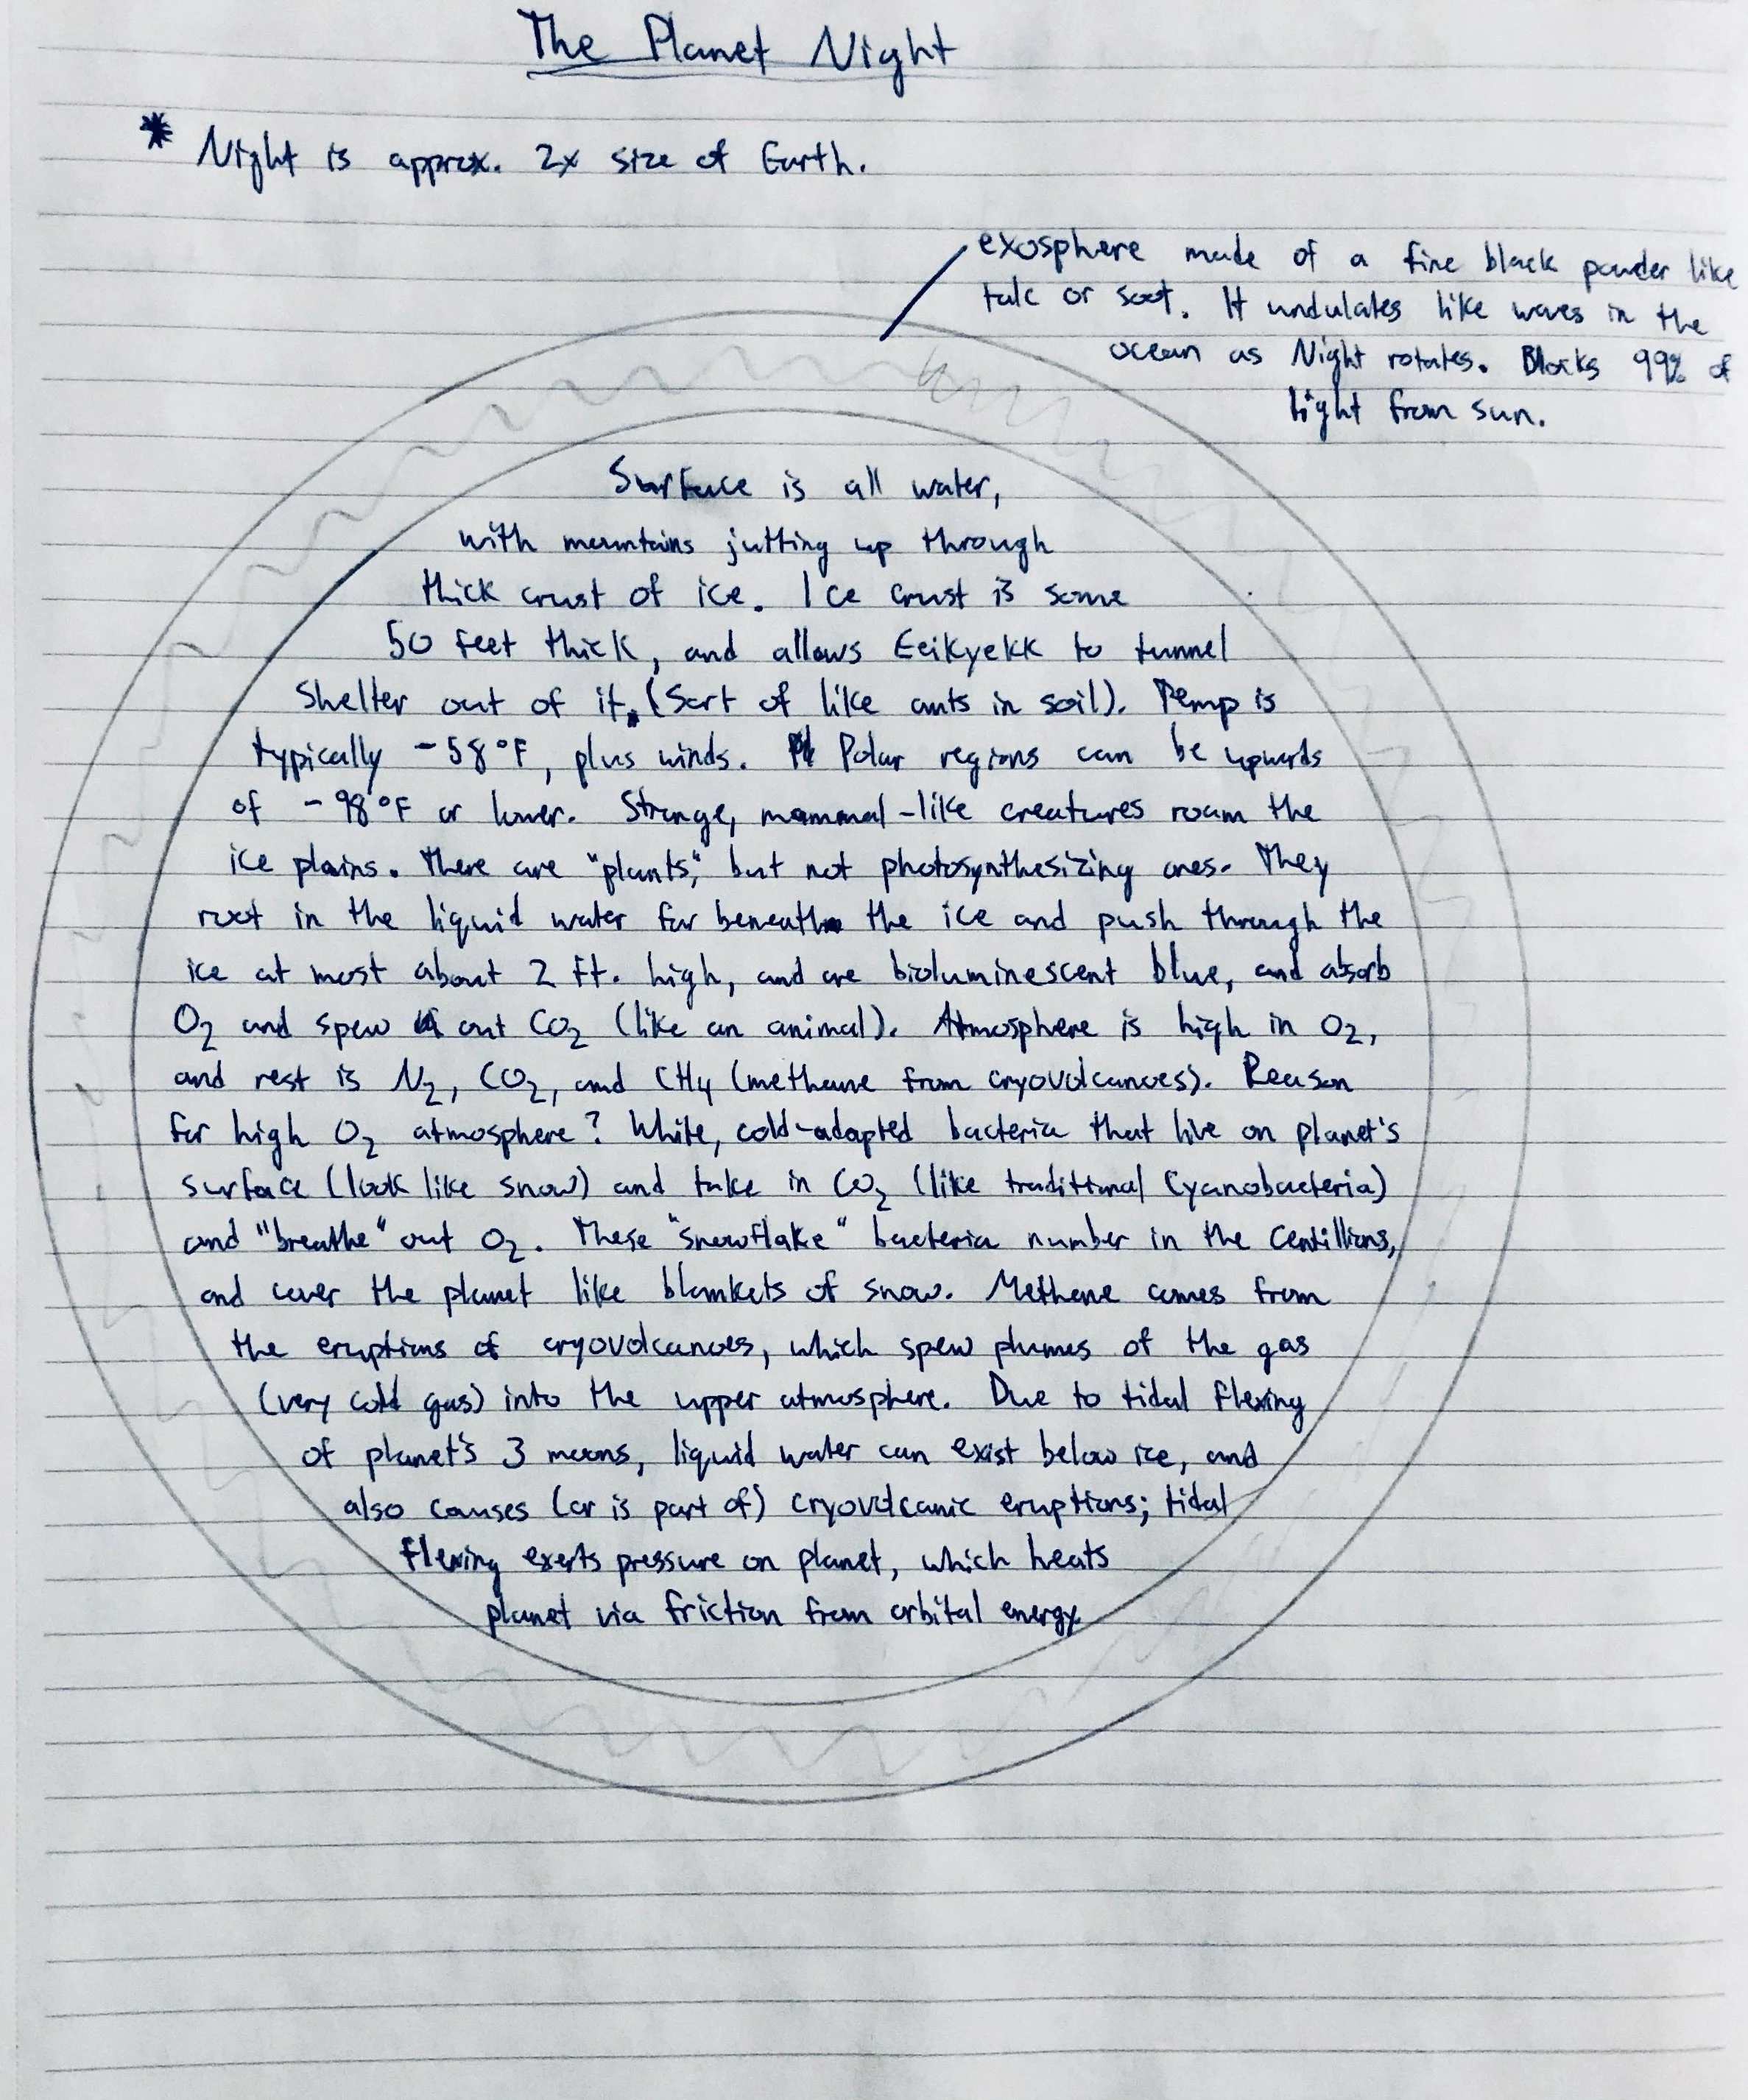 The Planet Night
* Night is approx. 2x size of Earth.
exosphere made of a fine black powder like
talc or soot. It undulates like waves in the
ocean as Night rotates. Blocks 99% of
light from sun.
Surface is all water,
with mountains jutting up through
thick crust of ice. Ice crust is some
50 feet thick, and allows Eeikyekk to tunnel
shelter out of it. (Sort of like ants in soil). Temp is
typically -58°F, plus winds. Polar regions can be upwards
of -98°F or lower. Strange, mammal-like creatures roam the
ice plains. There are "plants," but not photosynthesizing ones. They
root in the liquid water far beneath the ice and push through the
ice at most about 2 ft. high, and are bioluminescent blue, and absorb
O₂ and spew out CO₂ (like an animal). Atmosphere is high in O₂,
and rest is N₂, CO₂, and CH₄ (methane from cryovolcanoes). Reason
for high O₂ atmosphere? White, cold-adapted bacteria that live on planet's
surface (look like snow) and take in CO₂ (like traditional Cyanobacteria)
and "breathe" out O₂. These "snowflake" bacteria number in the Centillions,
and cover the planet like blankets of snow. Methane comes from
the eruptions of cryovolcanoes, which spew plumes of the gas
(very cold gas) into the upper atmosphere. Due to tidal flexing
of planet's 3 moons, liquid water can exist below ice, and
also causes (or is part of) cryovolcanic eruptions; tidal
flexing exerts pressure on planet, which heats
planet via friction from orbital energy.